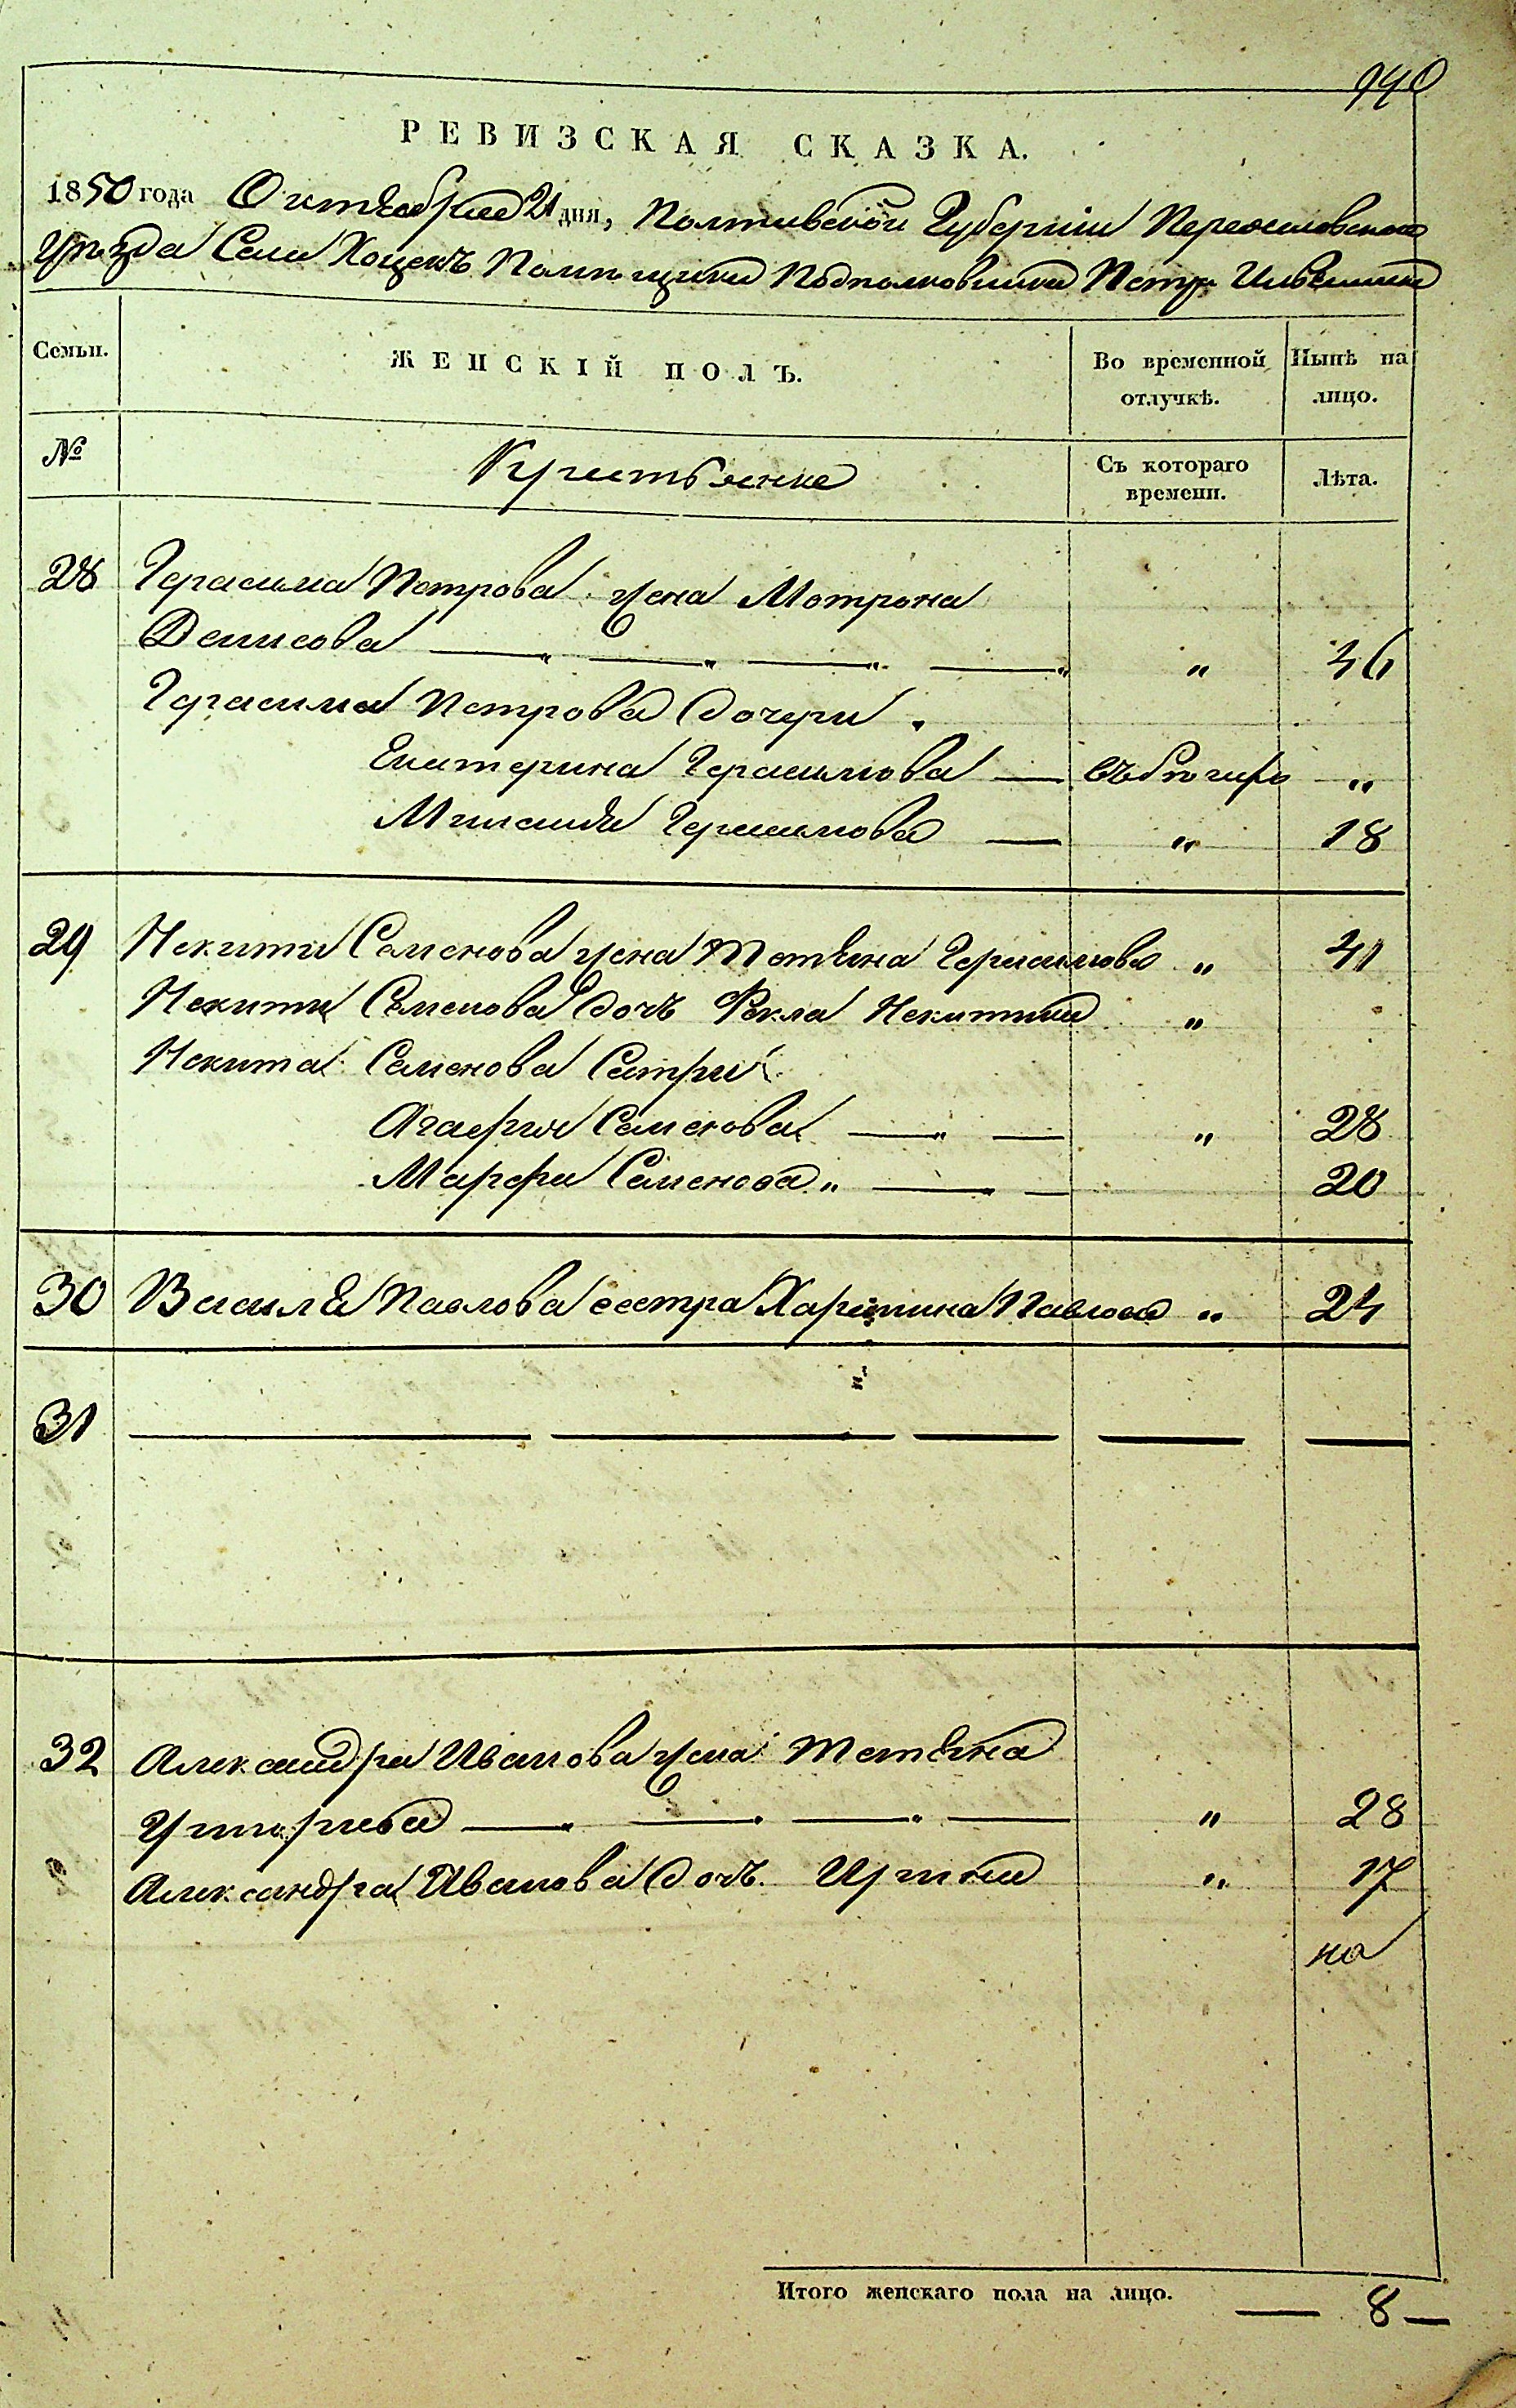 940
РЕВИЗСКАЯ СКАЗКА.
1850 года Октября 21 дня, Полтавской Губерніи Переяславскаго
Уѣзда Села Хоцекъ Помѣщика Подполковника Петра
Семьи. ЖЕНСКІЙ ПОЛЪ. Во временной отлучкѣ. Нынѣ на лицо.
№ Крестьянке Съ котораго времени. Лѣта.
28 Герасима Петрова жена Мотрона
Денисова " 46
Герасима Петрова дочери
Екатерина Герасимова "
Герасимова " 18
29 Некиты Семенова жена Тетяна Герасимова " 41
Некиты Семенова дочь Фекла Некитина "
Некита Семенова Сестри
Агафия Семенова " 28
Марфа Семенова " 20
30 Василя Павлова сестра Харитина Павлова " 24
31
32 Александра Иванова жена Тетяна
" 28
Александра Иванова дочь " 17
на
Итого женскаго пола на лицо. — 8 —